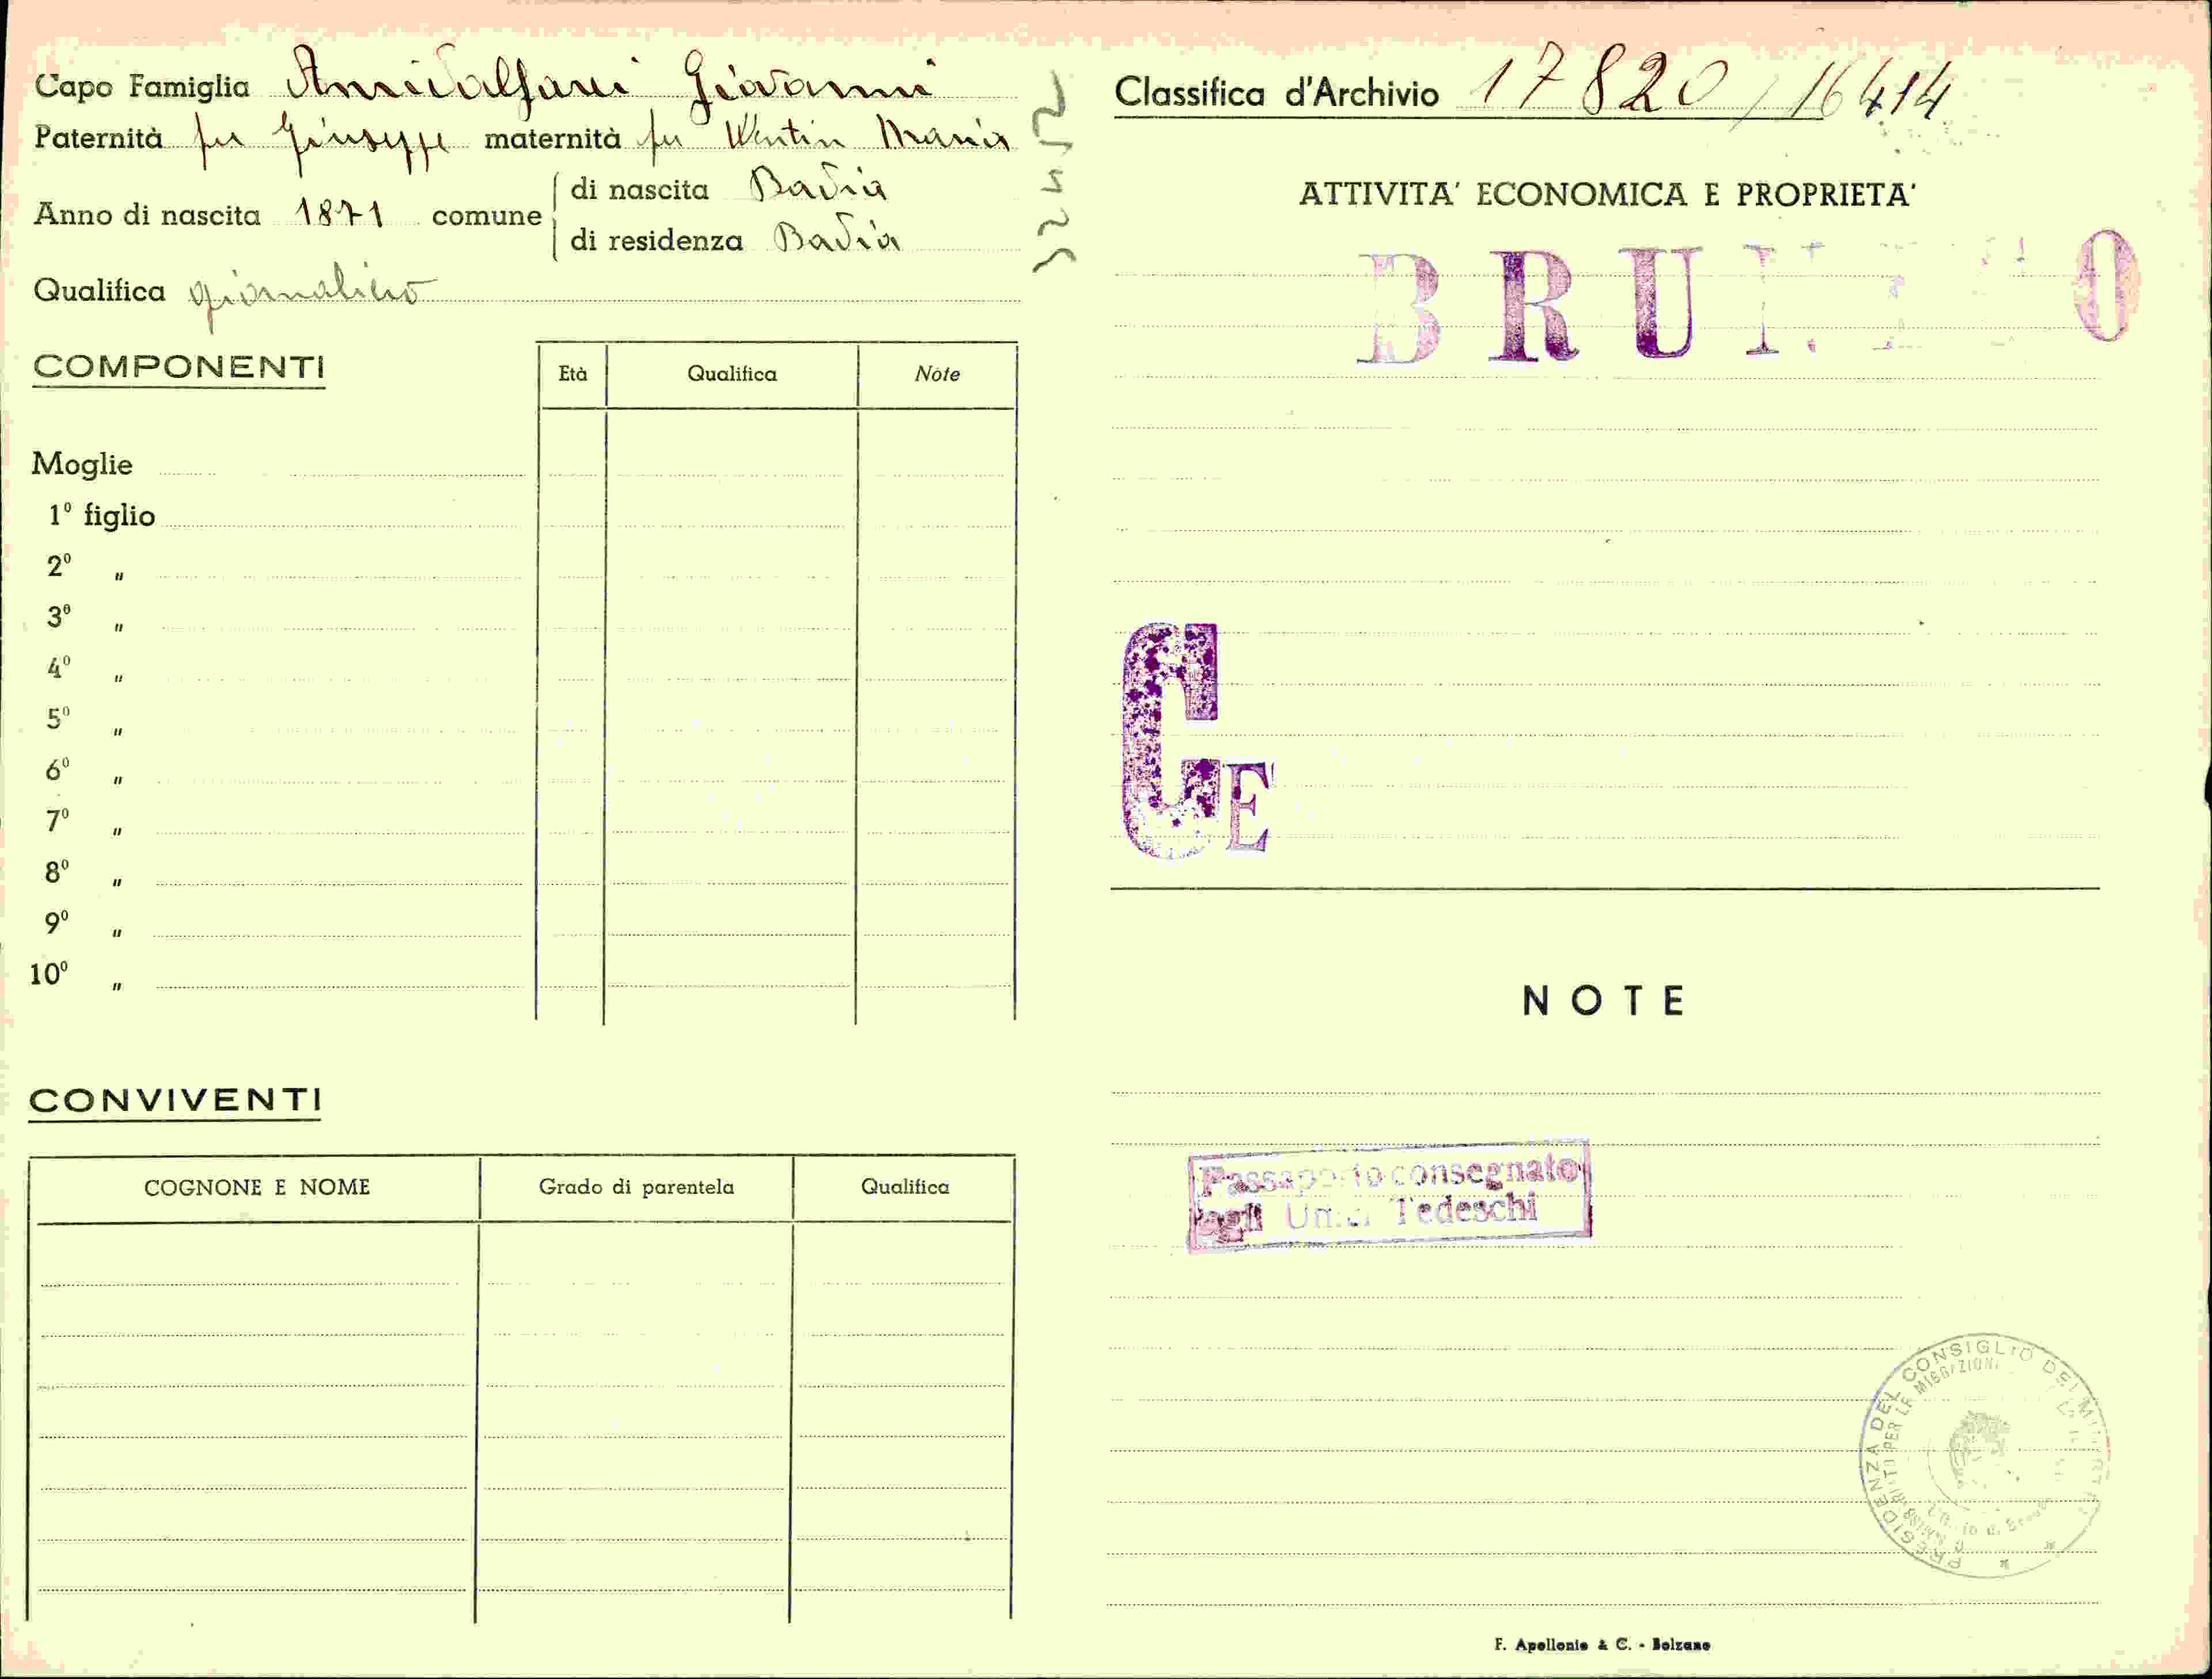 Capo Famiglia Giovanni
Paternità fu Giuseppe maternità fu Maria
Anno di nascita 1871 comune
di nascita Badia
di residenza Badia
Qualifica giornaliero
COMPONENTI
Età Qualifica Note
Moglie
1º figlio
2º "
3º "
4º "
5º "
6º "
7º "
8º "
9º "
10º "
CONVIVENTI
COGNONE E NOME Grado di parentela Qualifica
Classifica d'Archivio 17820 / 16414
ATTIVITA' ECONOMICA E PROPRIETA'
CE
NOTE
Passaporto consegnato
agli Uffici Tedeschi
PRESIDENZA DEL CONSIGLIO DEI
PER LE MIGRAZIONI
F. Apollonio & C. - Bolzano